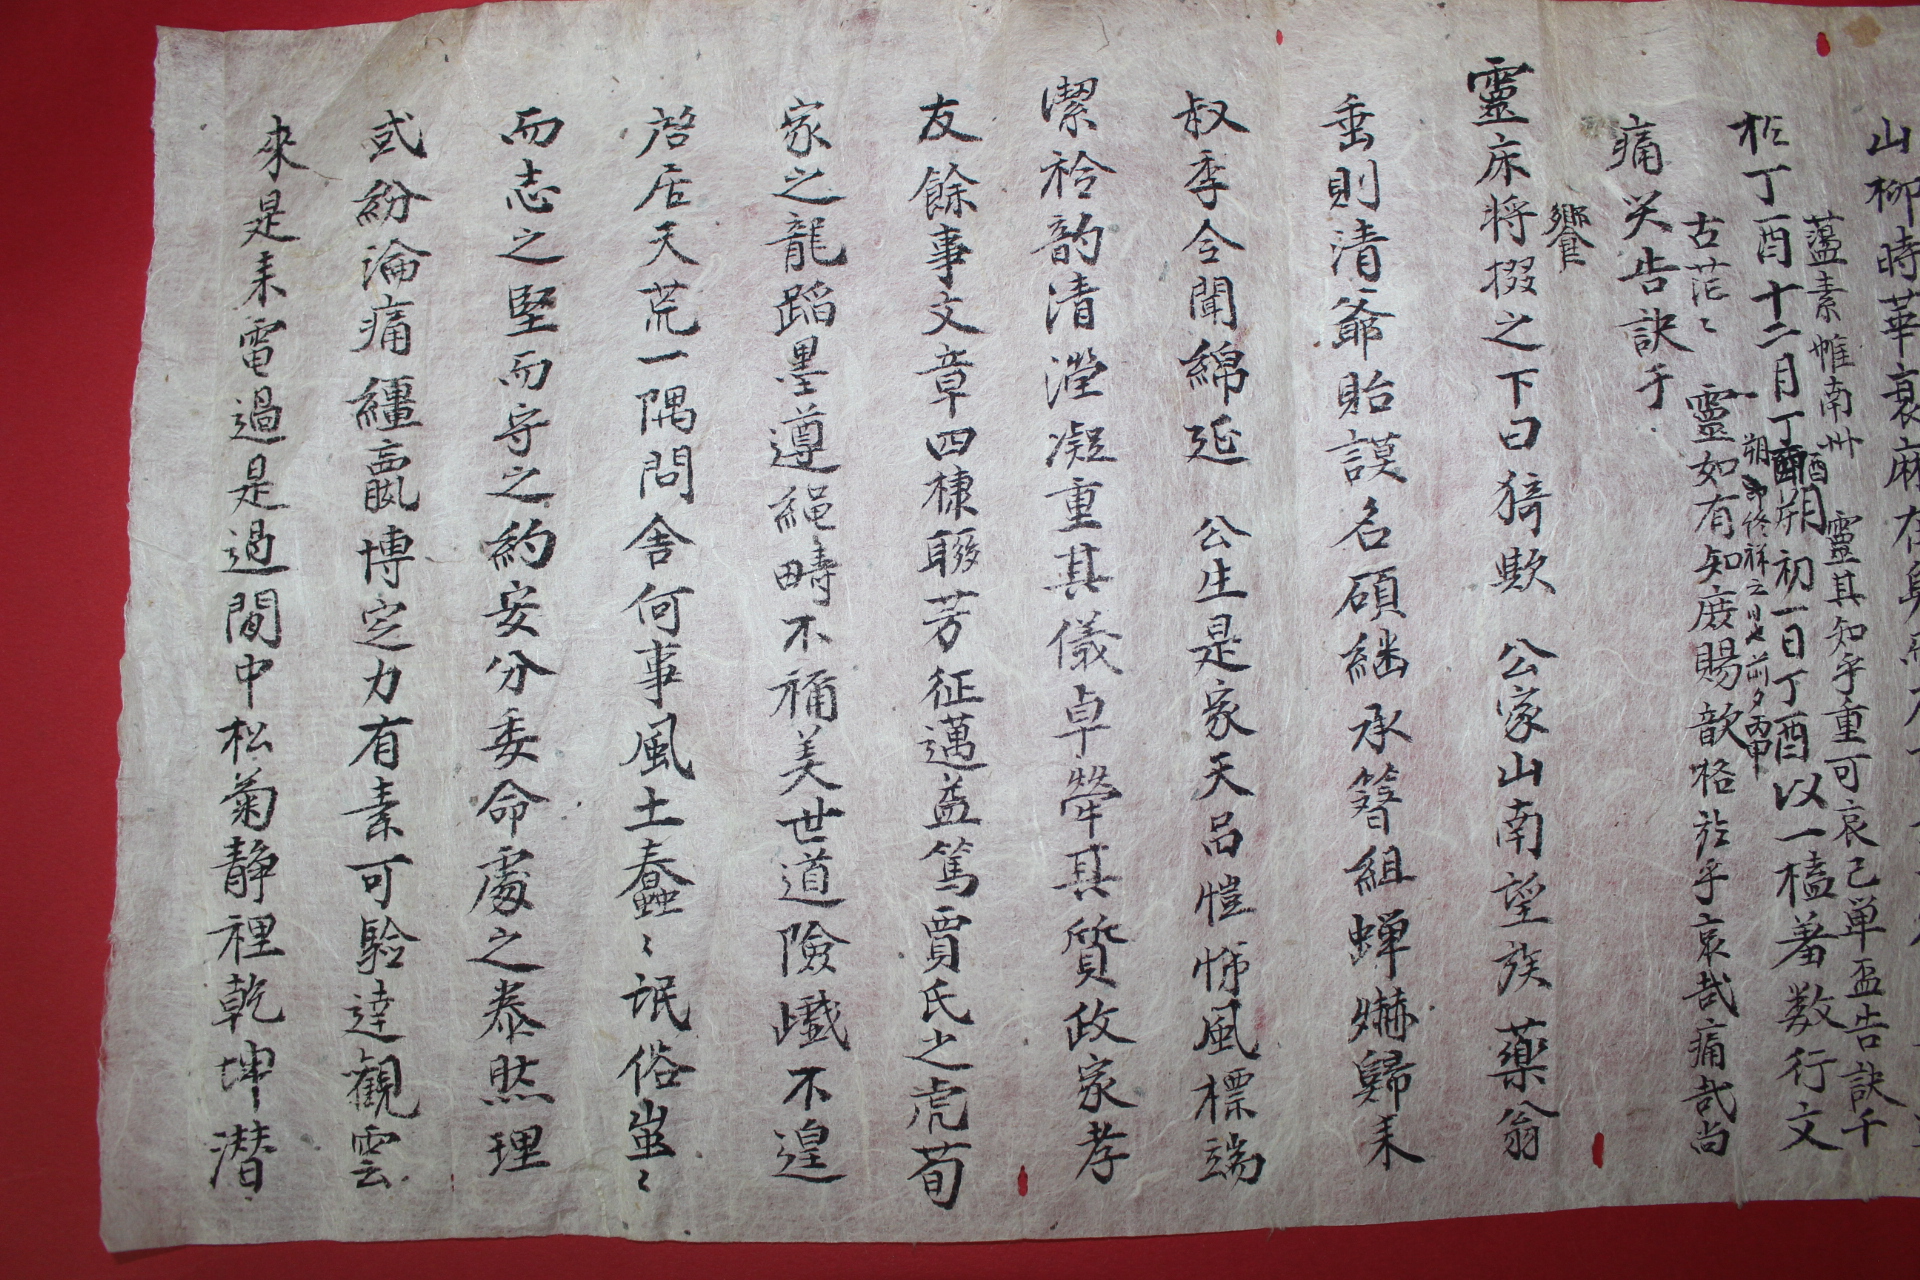 山柳時華衰麻在身
蘯素帷南州 靈其知乎重可哀已単盃告訣千
松丁酉十二月丁酉朔初一日丁酉以一榼羞数行文
朔 祥之 前夕丙申
古茫〻 靈如有知庶賜歆格於乎哀哉痛哉尚
痛哭告訣于
饗
靈床将掇之下曰猗歟 公家山南望族薬翁
垂則清爺貽謨名碩継承簪組蝉嫣歸来
叔季令聞綿延 公生是家天品愷悌風標端
潔衿韵清瀅凝重其儀卓犖其質政家孝
友餘事文章四棣聯芳征邁益篤賈氏之虎荀
家之龍蹈墨遵繩疇不禰美世道險巇不遑
啓居天荒一隅問舎何事風土蠢〻氓俗蚩〻
而志之堅而守之約安分委命處之泰然理
或紛淪痛纒嬴博定力有素可驗達觀雲
來是耒電過是過閒中松菊静裡乾坤潜